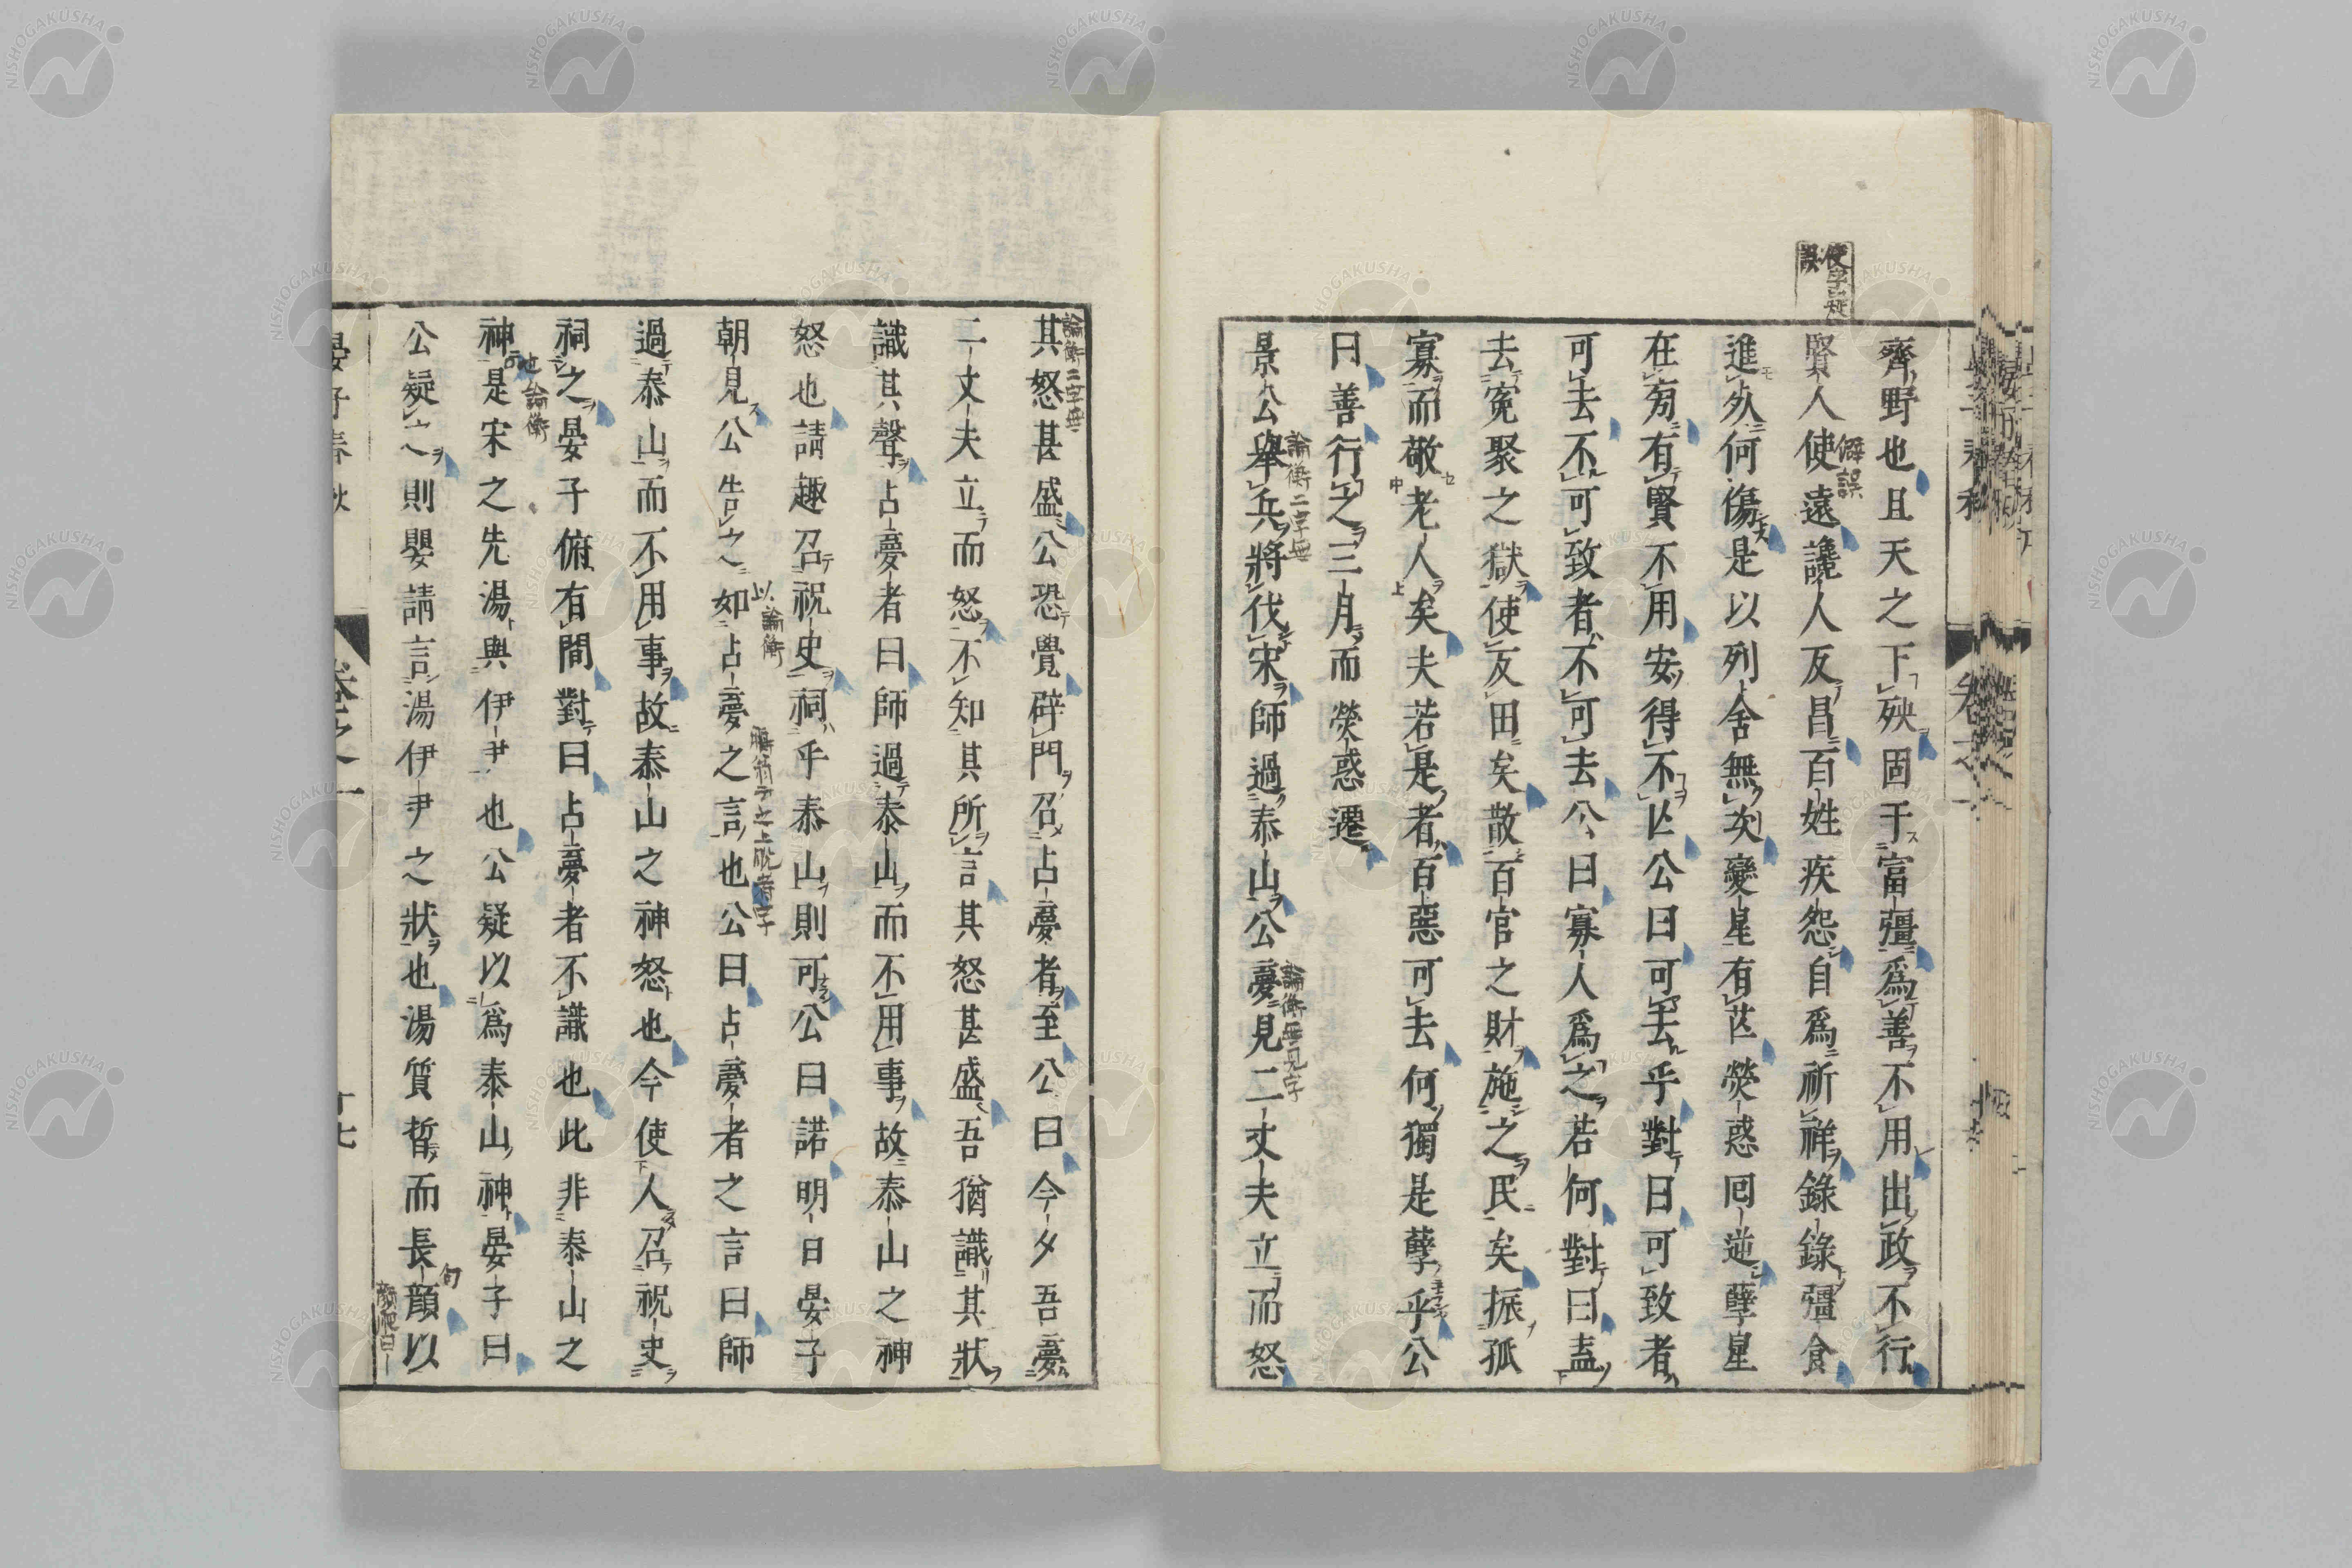 使字疑
誤
齊野也且天之下殃固于富彊爲善不用出政不行
賢人使遠讒人反昌百姓疾怨自爲祈祥錄錄彊食
僻誤
進死何傷是以列舍無次變星有芒熒惑囘逆孼星
在旁有賢不用安得不亾公曰可去乎對曰可致者
可去不可致者不可去公曰寡人爲之若何對曰盍
去寃聚之獄使反田矣散百官之財施之民矣振孤
寡而敬老人矣夫若是者百惡可去何獨是孽乎公
曰善行之三月而熒惑遷
景公舉兵將伐宋師過泰山公夢見二丈夫立而怒
論衡二字無
論衡無見字
其怒甚盛公恐覺辟門召占夢者至公曰今夕吾夢
論衡二字無
二丈夫立而怒不知其所言其怒甚盛吾猶識其狀
識其聲占夢者曰師過泰山而不用事故泰山之神
怒也請趣召祝史祠乎泰山則可公曰諾明日晏子
朝見公告之如占夢之言也公曰占夢者之言曰師
以論衡
過泰山而不用事故泰山之神怒也今使人召祝史
祠之晏子俯有間對曰占夢者不識也此非泰山之
神是宋之先湯與伊尹也公疑以爲泰山神晏子曰
也論衡
公疑之則嬰請言湯伊尹之狀也湯質晳而長顏以
句
晏子春秋 卷之一 十七